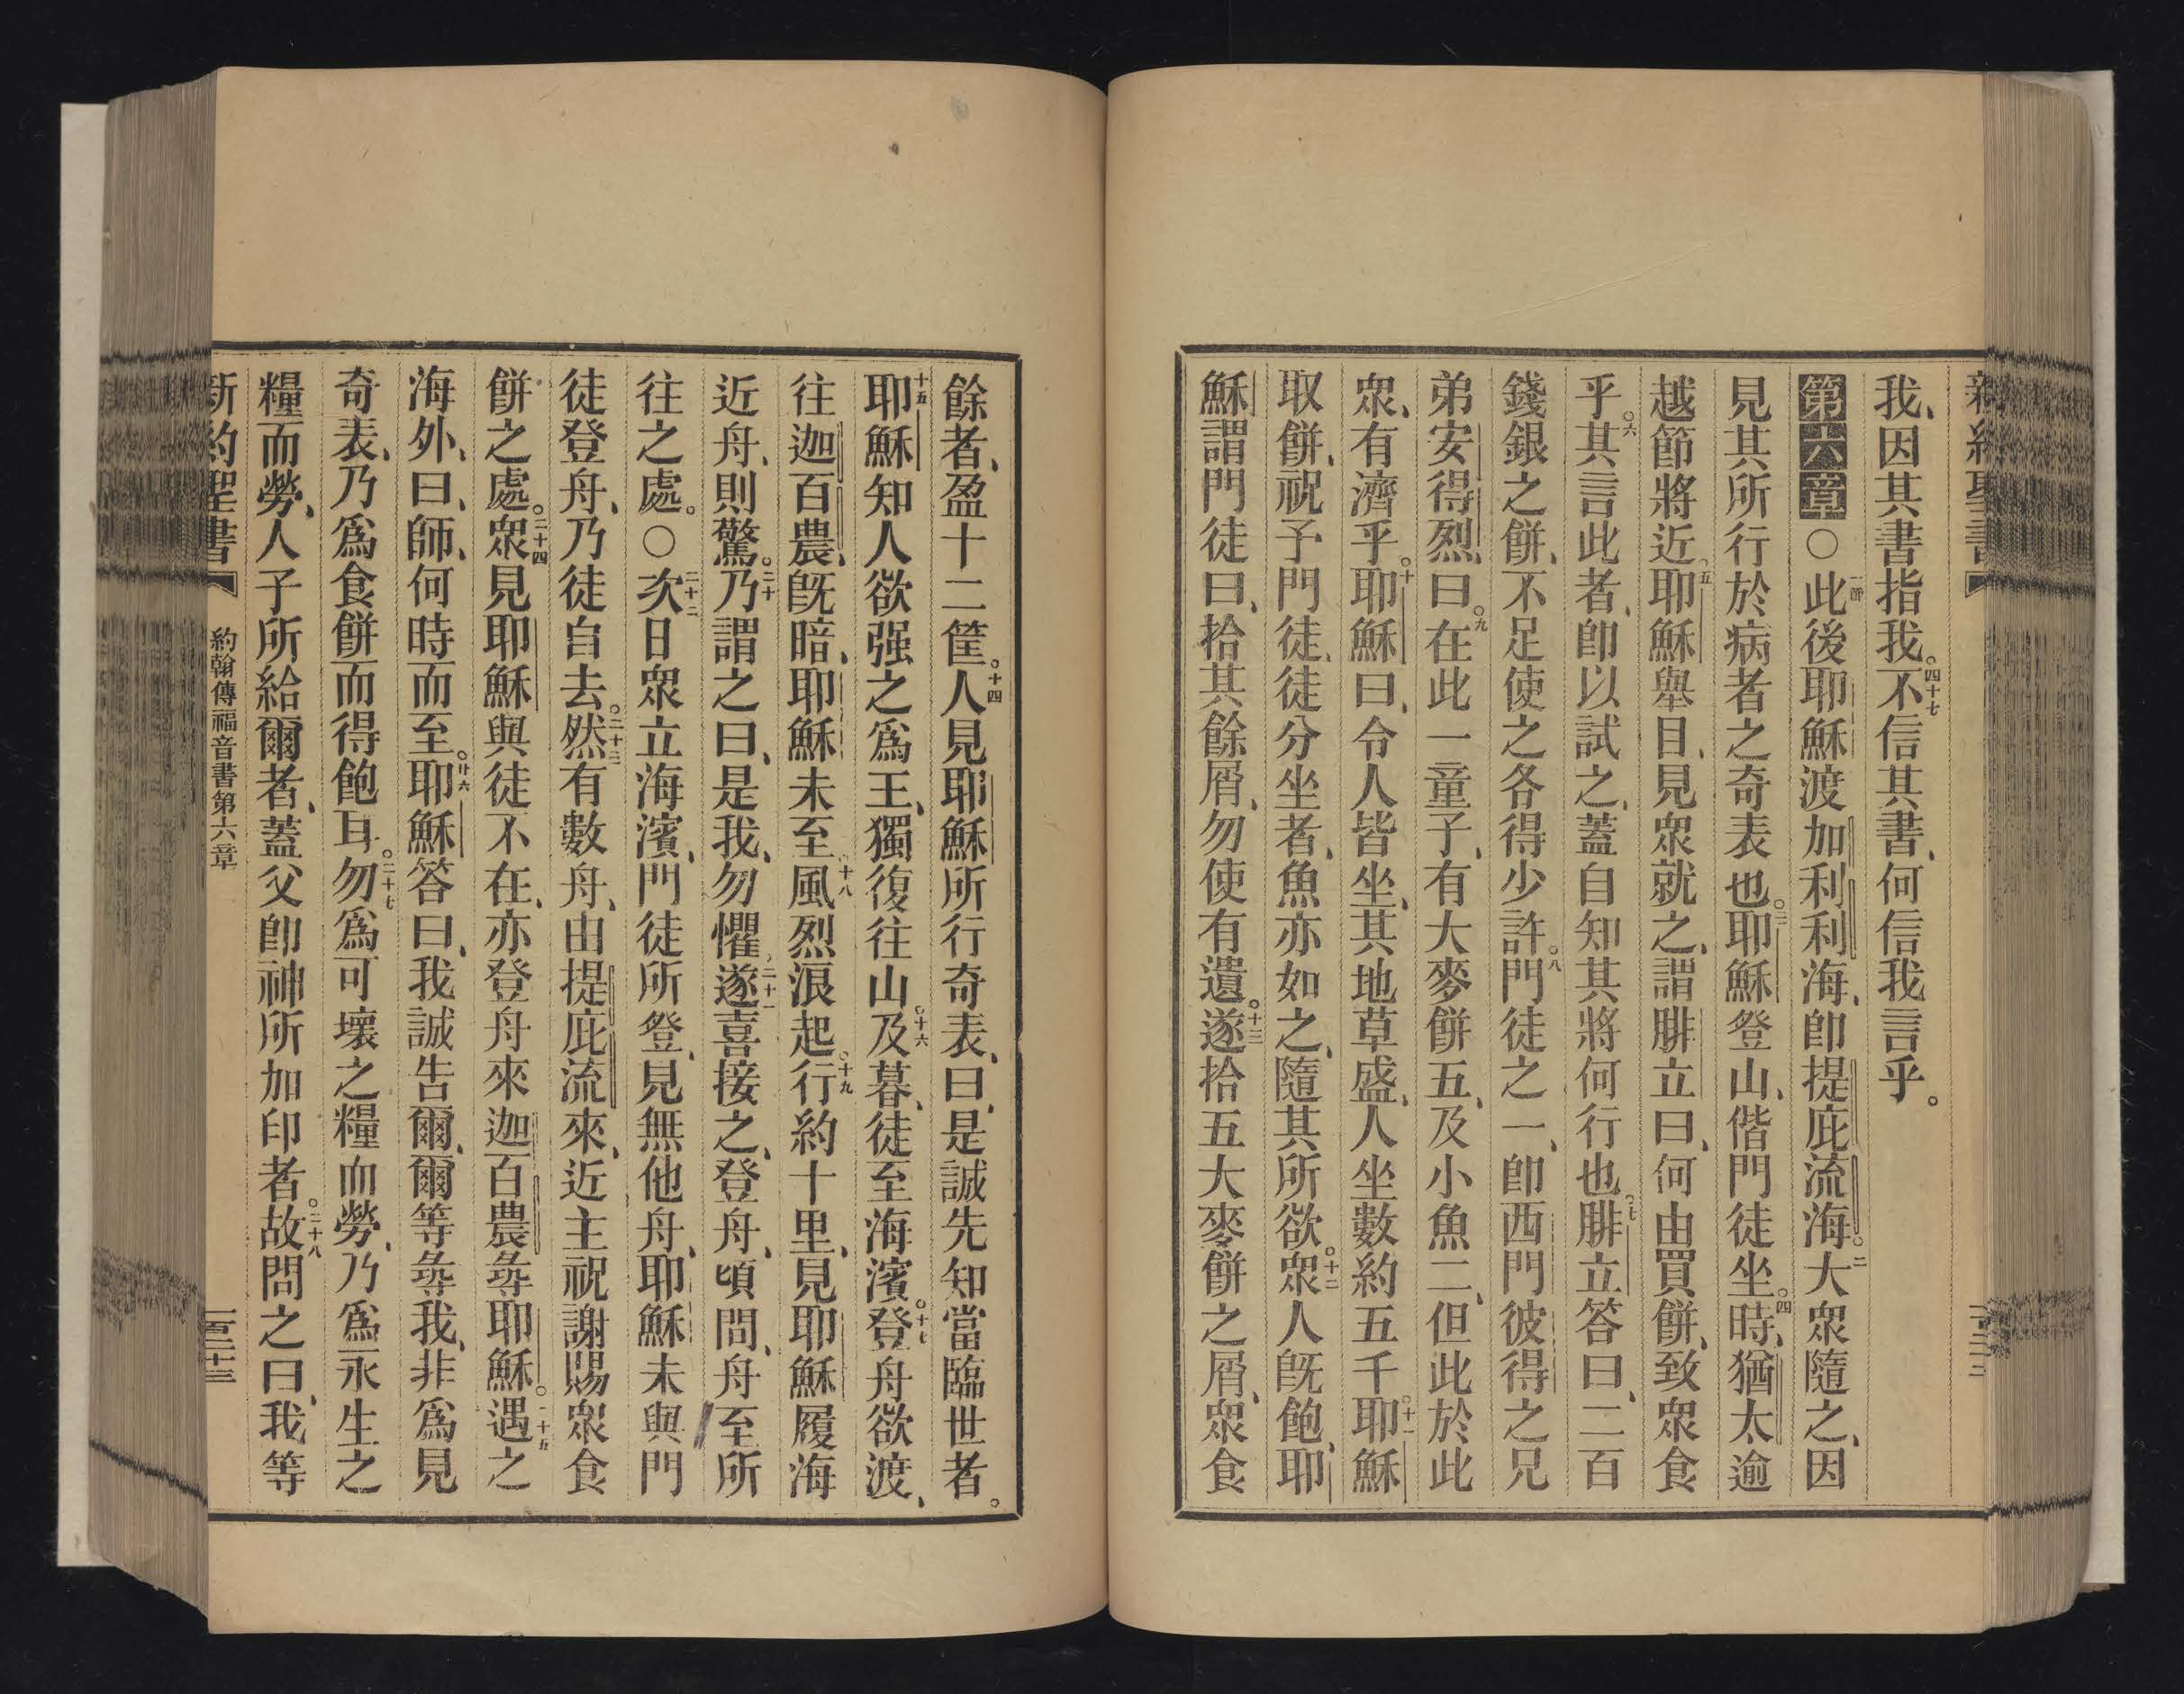 我、因其書指我。四十七不信其書、何信我言乎。
第六章○一節此後耶穌渡加利利海、卽提庇流海。二大衆隨之、因
見其所行於病者之奇表也。三耶穌登山、偕門徒坐。四時、猶太逾
越節將近。五耶穌舉目、見衆就之、謂腓立曰、何由買餅、致衆食
乎。六其言此者、卽以試之、蓋自知其將何行也。七腓立答曰、二百
錢銀之餅、不足使之各得少許。八門徒之一、卽西門彼得之兄
弟安得烈、曰。九在此一童子、有大麥餅五、及小魚二、但此於此
衆、有濟乎。十耶穌曰、令人皆坐、其地草盛、人坐數約五千。十一耶穌
取餅、祝予門徒、徒分坐者、魚亦如之、隨其所欲。十二衆人旣飽、耶
穌謂門徒曰、拾其餘屑、勿使有遺。十三遂拾五大麥餅之屑、衆食
餘者、盈十二筐。十四人見耶穌所行奇表、曰、是誠先知當臨世者。
十五耶穌知人欲强之爲王、獨復往山。十六及暮、徒至海濱。十七登舟欲渡、
往迦百農、旣暗、耶穌未至。十八風烈浪起。十九行約十里、見耶穌履海
近舟、則驚。二十乃謂之曰、是我、勿懼。二十一遂喜接之、登舟、頃間、舟至所
往之處。○二十二次日衆立海濱、門徒所登、見無他舟、耶穌未與門
徒登舟、乃徒自去。二十三然有數舟、由提庇流來、近主祝謝賜衆食
餅之處。二十四衆見耶穌與徒不在、亦登舟來迦百農尋耶穌。二十五遇之
海外、曰、師、何時而至。廿六耶穌答曰、我誠告爾、爾等尋我、非爲見
奇表、乃爲食餅而得飽耳。二十七勿爲可壞之糧而勞、乃爲永生之
糧而勞、人子所給爾者、蓋父卽神所加印者。二十八故問之曰、我等
新約聖書 約翰傳福音書第六章 一百二十三